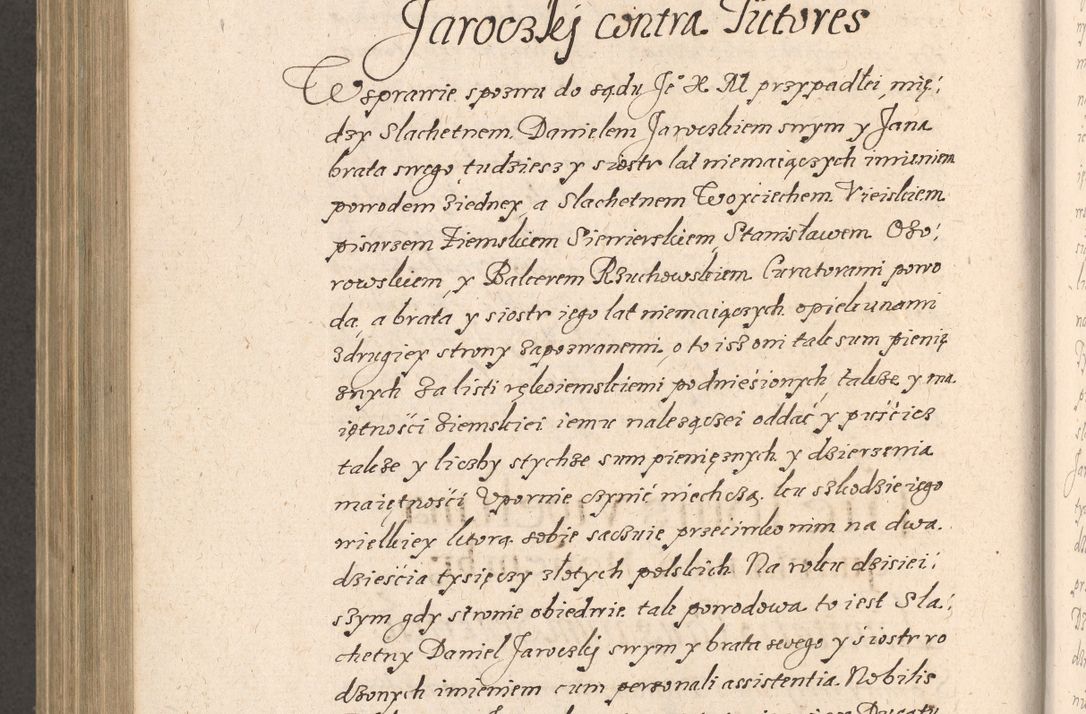 Jaroczkj contra Tutores
W sprawie spozwu do sądu Je° X M przypadłei mię:
dzy Slachetnem Danielem Jaroczkiem swym y Jana
brata swego tudziesz y siostr lat niemaiączych imieniem
powodem z iedney, a Slachetnem Woyciechem Vieiskiem
pisarzem Ziemskiem Siewierskiem, Stanisławem Ożo:
rowskiem, y Balcerem Rzuchowskiem Curatorami powo
da, a brata y siostr iego lat niemaiączych opiekunami
z drugiey strony zapozwanemi, o to isz oni tak sum pienię
żnych za listi rękoiemskiemi podnieśionych, także y ma
iętności ziemskiei iemu należączei oddać y puścicz
także y liczby stychże sum pieniężnych y dzierzenia
maiętności Vpornie czynić niechczą. ku szkodzie iego
wielkiey ktorą sobie saczuie przeciwko nim na dwa
dzieścia tysięczy złotych polskich. Na roku dzisiei:
szym gdy stronie obiedwie tak powodowa to iest Sla:
chetny Daniel Jaroczkj swym y brata swego y śiostr ro
dzonych imieniem cum personali assistentia Nobilis